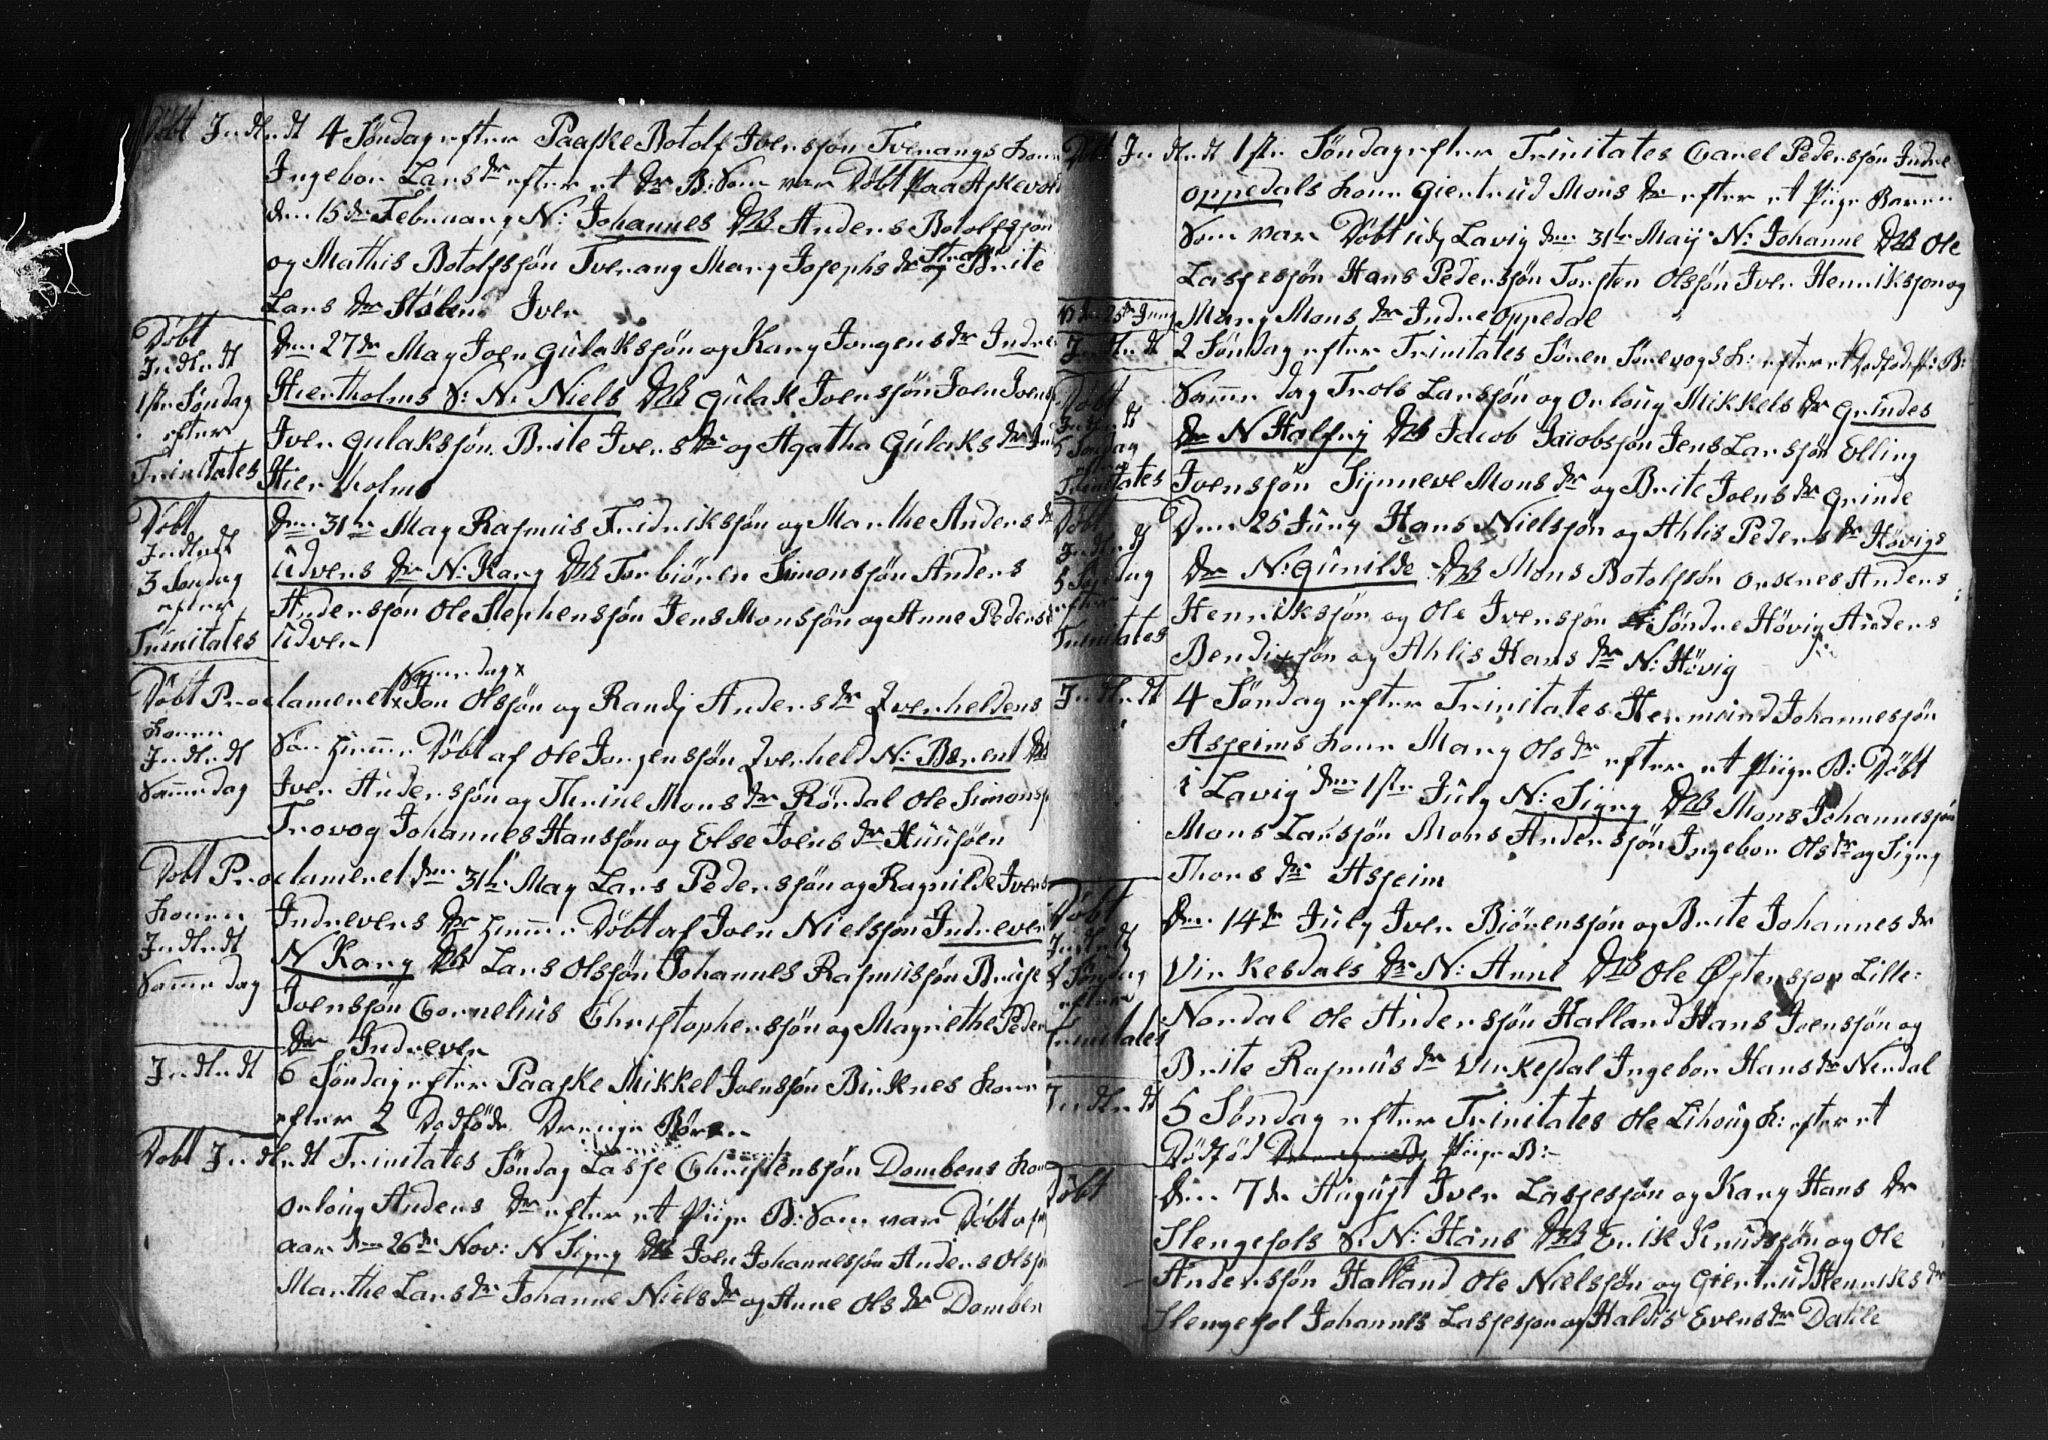 Døbt Indledt 4 Søndag efter Paaske Botolf Iversøn Tverangs kone
Ingebor Lars dr efter et dr B: Som var Døbt paa Askevold
den 15de Februarij N: Johannes DVB Anders Botolfsøn
og Mathis Botolfsøn Tverang Mary Josephs dr og Brite
Lars dr Stølen Iver
Døbt
Indledt
1ste Søndag
efter
Trinitates
Den 27de May Joen Gulaksøn og Kary Jorgens dr Indre
Hiertholms S: N: Niels DVB Gulak Joensøn Joen Joens
Iver Gulaksøn Brite Ivers dr og Agatha Gulaks dr Ind
Hiertholm
Døbt
Indledt
3 Søndag
efter
Trinitates
Den 31te May Rasmus Fridriksøn og Marthe Anders dr
Udvers dr N: Kary DVB Torbiøren Simonsøn Anders
Andersøn Ole Stephensøn Jens Monsøn og Anne Peders
Udver
Samme dag x
Døbt Proclameret x Jon Olsøn og Randj Anders dr Qverheldens
Konen
Indledt
Samme dag
Søn hiemme Døbt af Ole Jorgensøn Qverheld N: Berent DVB
Iver Andersøn og Thrine Mons dr Rørdal Ole Simons
Trovog Johannes Hansøn og Else Joens dr Huusøen
Døbt Proclameret den 31te May Lars Pedersøn og Ragnilde Ivers
Konen
Indledt
Samme dag
Indrevers dr hiemme Døbt af Joen Nielsøn Indrever
N Kary DVB Lars Olsøn Johannes Rasmusøn Brite
Joensøn Cornelius Christophersøn og Magrethe Peder
dr Indrever
Indledt 6 Søndag efter Paaske Mikkel Joensøn Birknes kone
efter 2 Dødføde Drenge Børn
Døbt Indledt Trinitates Søndag Lasse Christensøn Dombens kone
Orloug Anders dr efter et Piige B: Som var Døbt
aar den 26de Nov: N Signy DVB Joen Johannesøn Anders Olsøn
Marthe Lars dr Johanne Niels dr og Anne Ols dr Domben
Døbt Indledt 1ste Søndag efter Trinitates Carel Pedersøn Indre
Oppedals kone Giertrud Mons dr efter et Piige Baren
Som var Døbt udj Lavig den 31te Maij N: Johanne DVB Ole
Lassesøn Hans Pedersøn Torsten Olsøn Iver Henriksøn og
Mary Mons dr Indre Oppedal
25de Juny
Indledt 2 Søndag efter Trinitates Søren Sørevogs K: efter et Dødfødt: B:
Døbt
Indledt
Søndag
efter
Trinitates
Samme dag Trols Larsøn og Orloug Mikkels dr Grindes
dr N Halfrij DVB Jacob Jacobsøn Jens Larsøn Elling
Iversøn Synneve Mons dr og Brite Joens dr Grinde
Døbt
Indledt
5 Søndag
efter
Trinitates
Den 25 Juny Hans Nielsøn og Ahlis Peders dr Høvigs
dr N: Gunilde DVB Mons Botolfsøn Orsnes Anders
Henriksøn og Ole Iversøn Søndre Høvig Anders
Bendixsøn og Ahlis Hans dr N: Høvig
Indledt 4 Søndag efter Trinitates Hermund Johannesøn
Asseims kone Mary Ols dr efter et Piige B: Døbt
i Lavig den 1ste July N: Signy DVB Mons Johannesøn
Mons Larsøn Mons Andersøn Ingebor Ols dr og Signy
Thors dr Asseim
Døbt
Indledt
8 Søndag
efter
Trinitates
Den 14de July Iver Biørensøn og Brite Johannes dr
Virkesdals dr N: Anne DVB Ole Østensøn Lille:
Nordal Ole Andersøn Halland Hans Joensøn og
Brite Rasmus dr Virkesdal Ingebor Hans dr Nordal
Indledt 5 Søndag efter Trinitates Ole Lihoug K: efter et
Dødfød Drenge B: Piige B:
Døbt den 7de August Iver Lassesøn og Kary Hans dr
Slengesols S. N: Hans DVB Erik Knudsøn og Ole
Andersøn Halland Ole Nielsøn og Giertrud Henriks dr
Slengesol Johannes Lassesøn og Haldis Evens dr Dahle